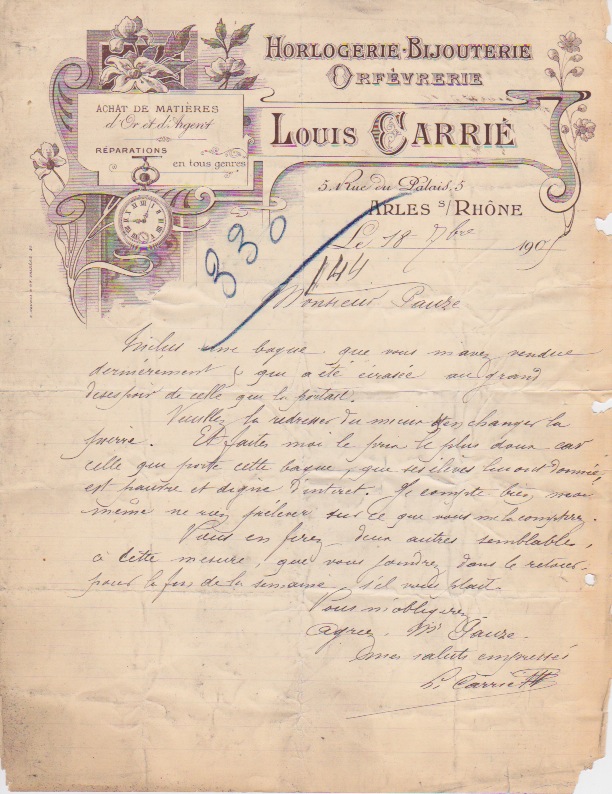 HORLOGERIE-BIJOUTERIE
ORFÈVRERIE
ACHAT DE MATIÈRES
d'Or et d'Argent
RÉPARATIONS
en tous genres
LOUIS CARRIÉ
5, Rue du Palais, 5
ARLES S/RHÔNE
Le 18 7bre 190
330
144
Monsieur Pauze
Inclus une bague, que vous m'avez vendue
dernièrement & qui a été écrasée au grand
desespoir de celle qui la portait.
Veuillez la redresser du mieux changer la
pierre. Et faites moi le prix le plus doux car
celle qui porte cette bague, que ses élèves lui ont donnée,
est pauvre et digne d'interet. Je compte bien moi
même ne rien prélever sur ce que vous me la compterez.
Vous en ferez deux autres semblables,
à cette mesure, que vous joindrez dans le retour.
pour la fin de la semaine, s'il vous plait.
Vous m'obligerez
Agréez, Mr Pauze.
mes saluts empressés
L. Carrié